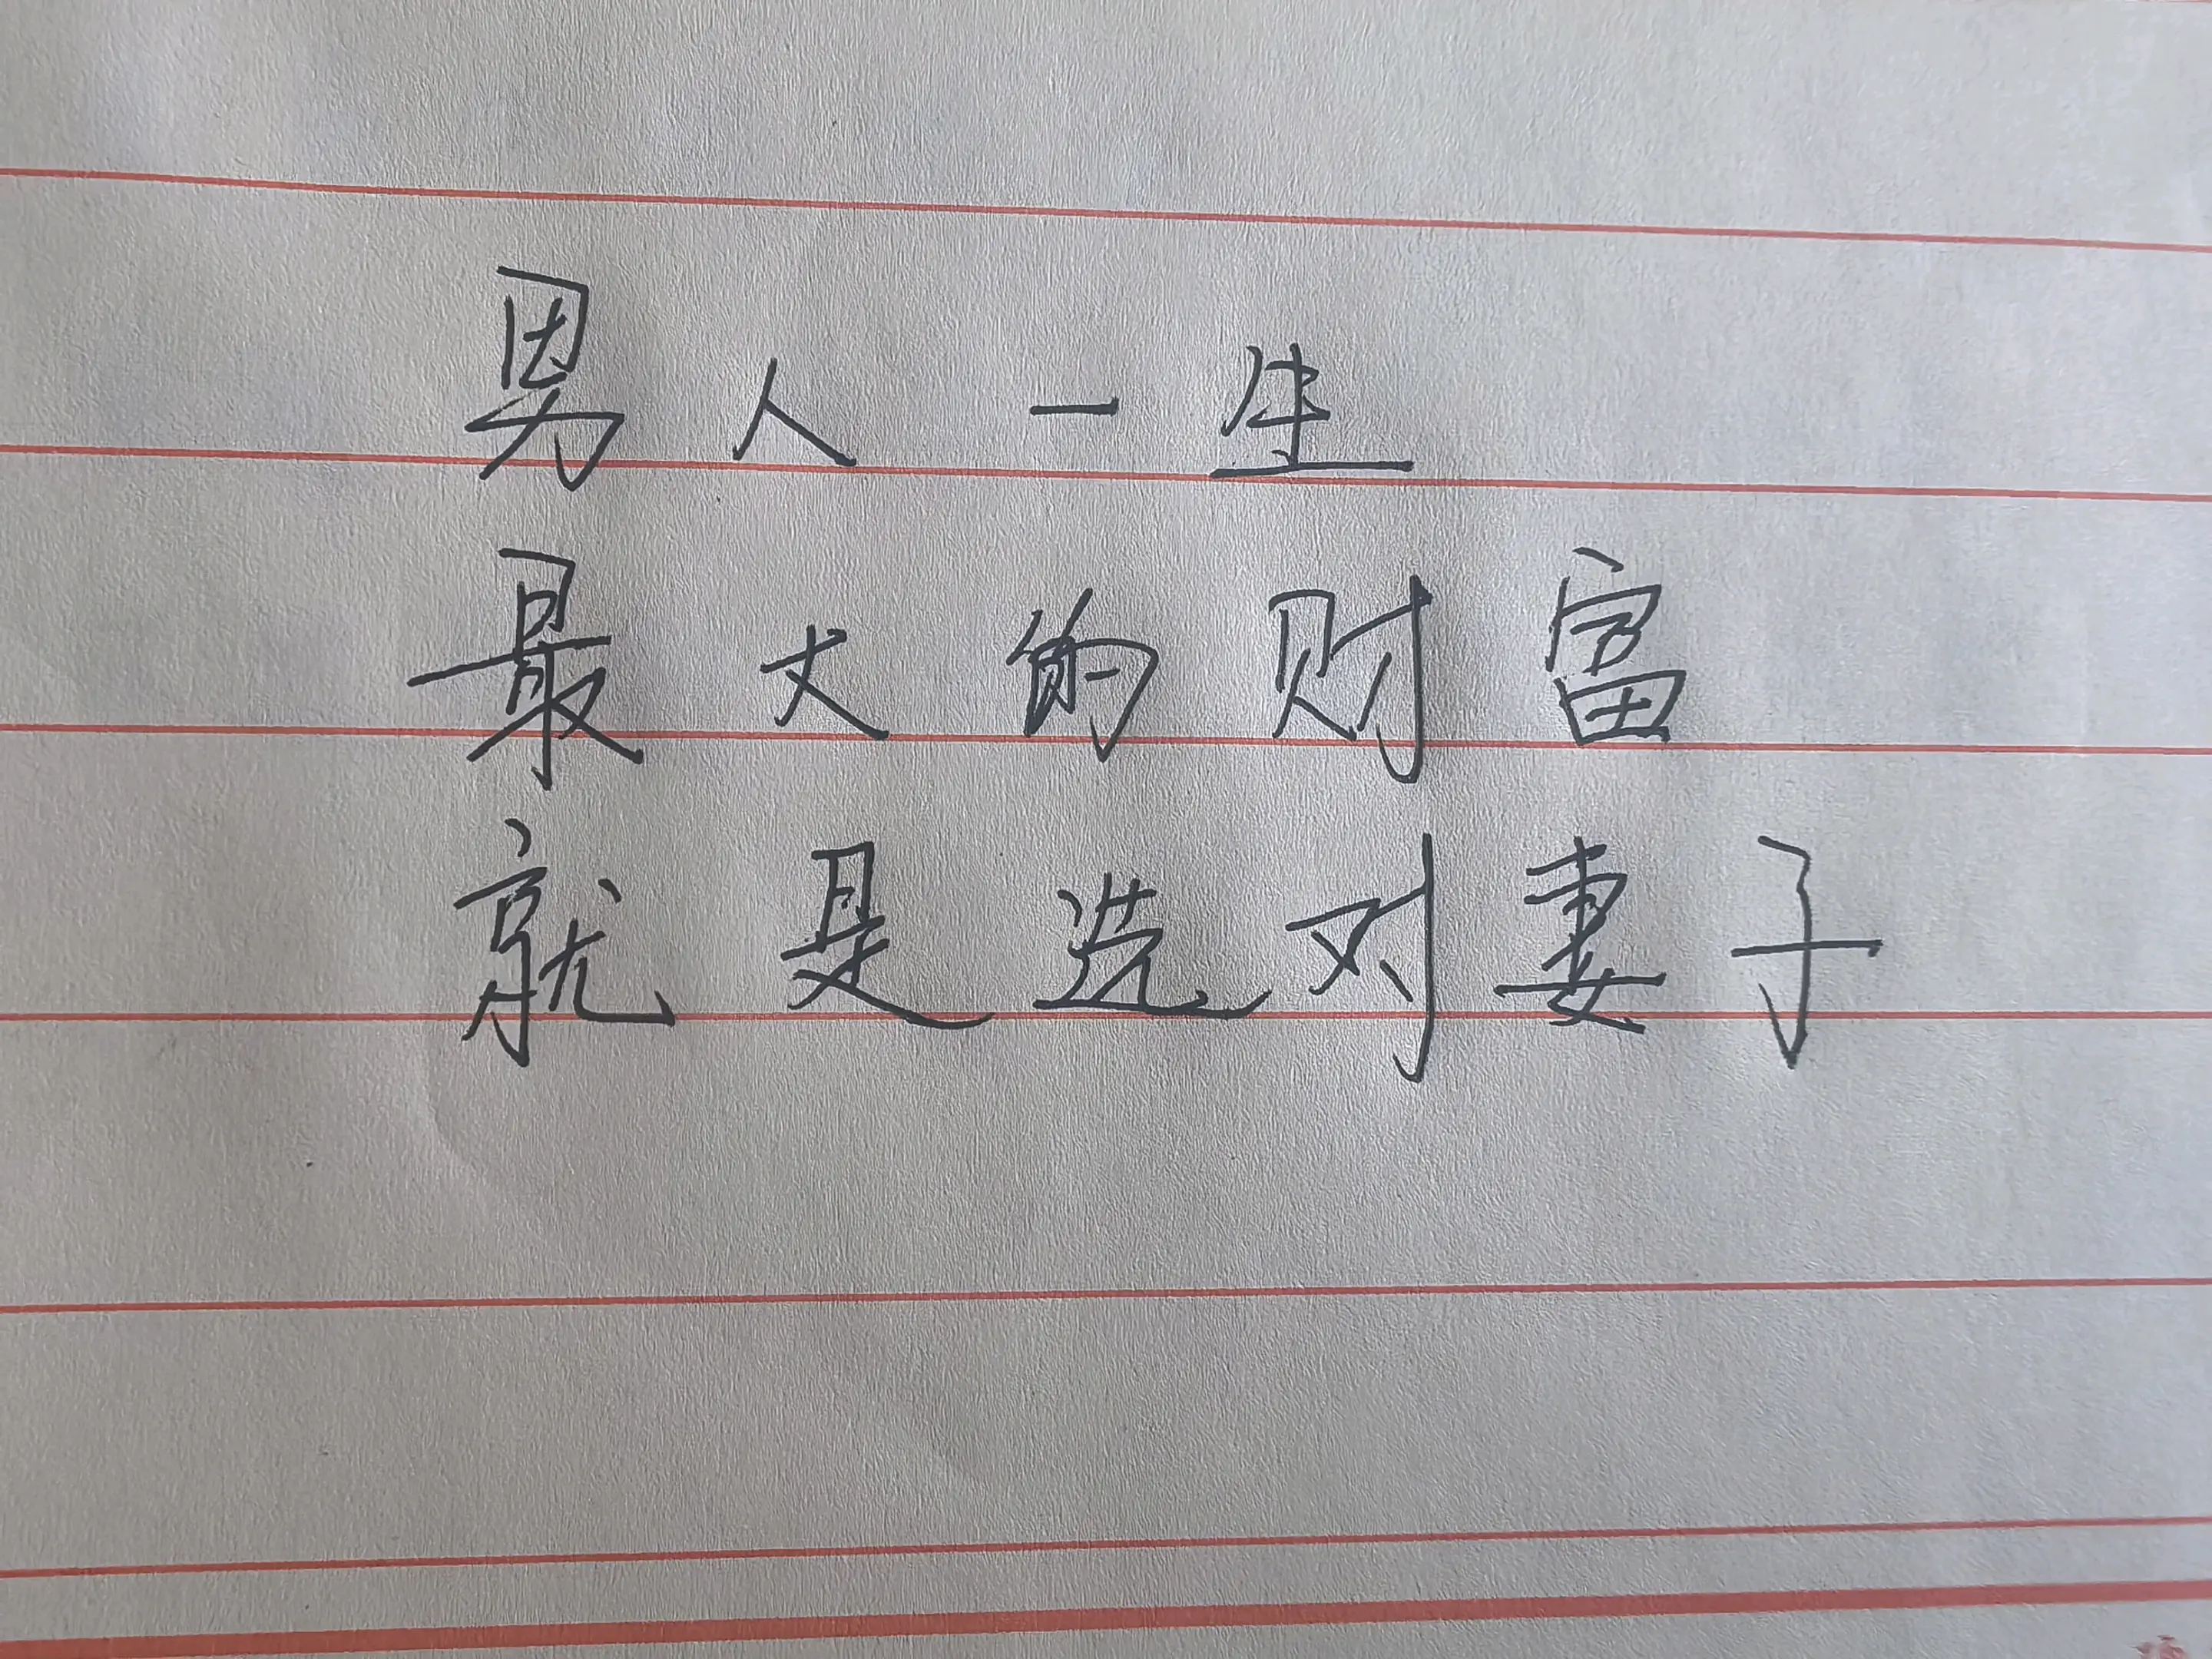 男人一生
最大的财富
就是选对妻子